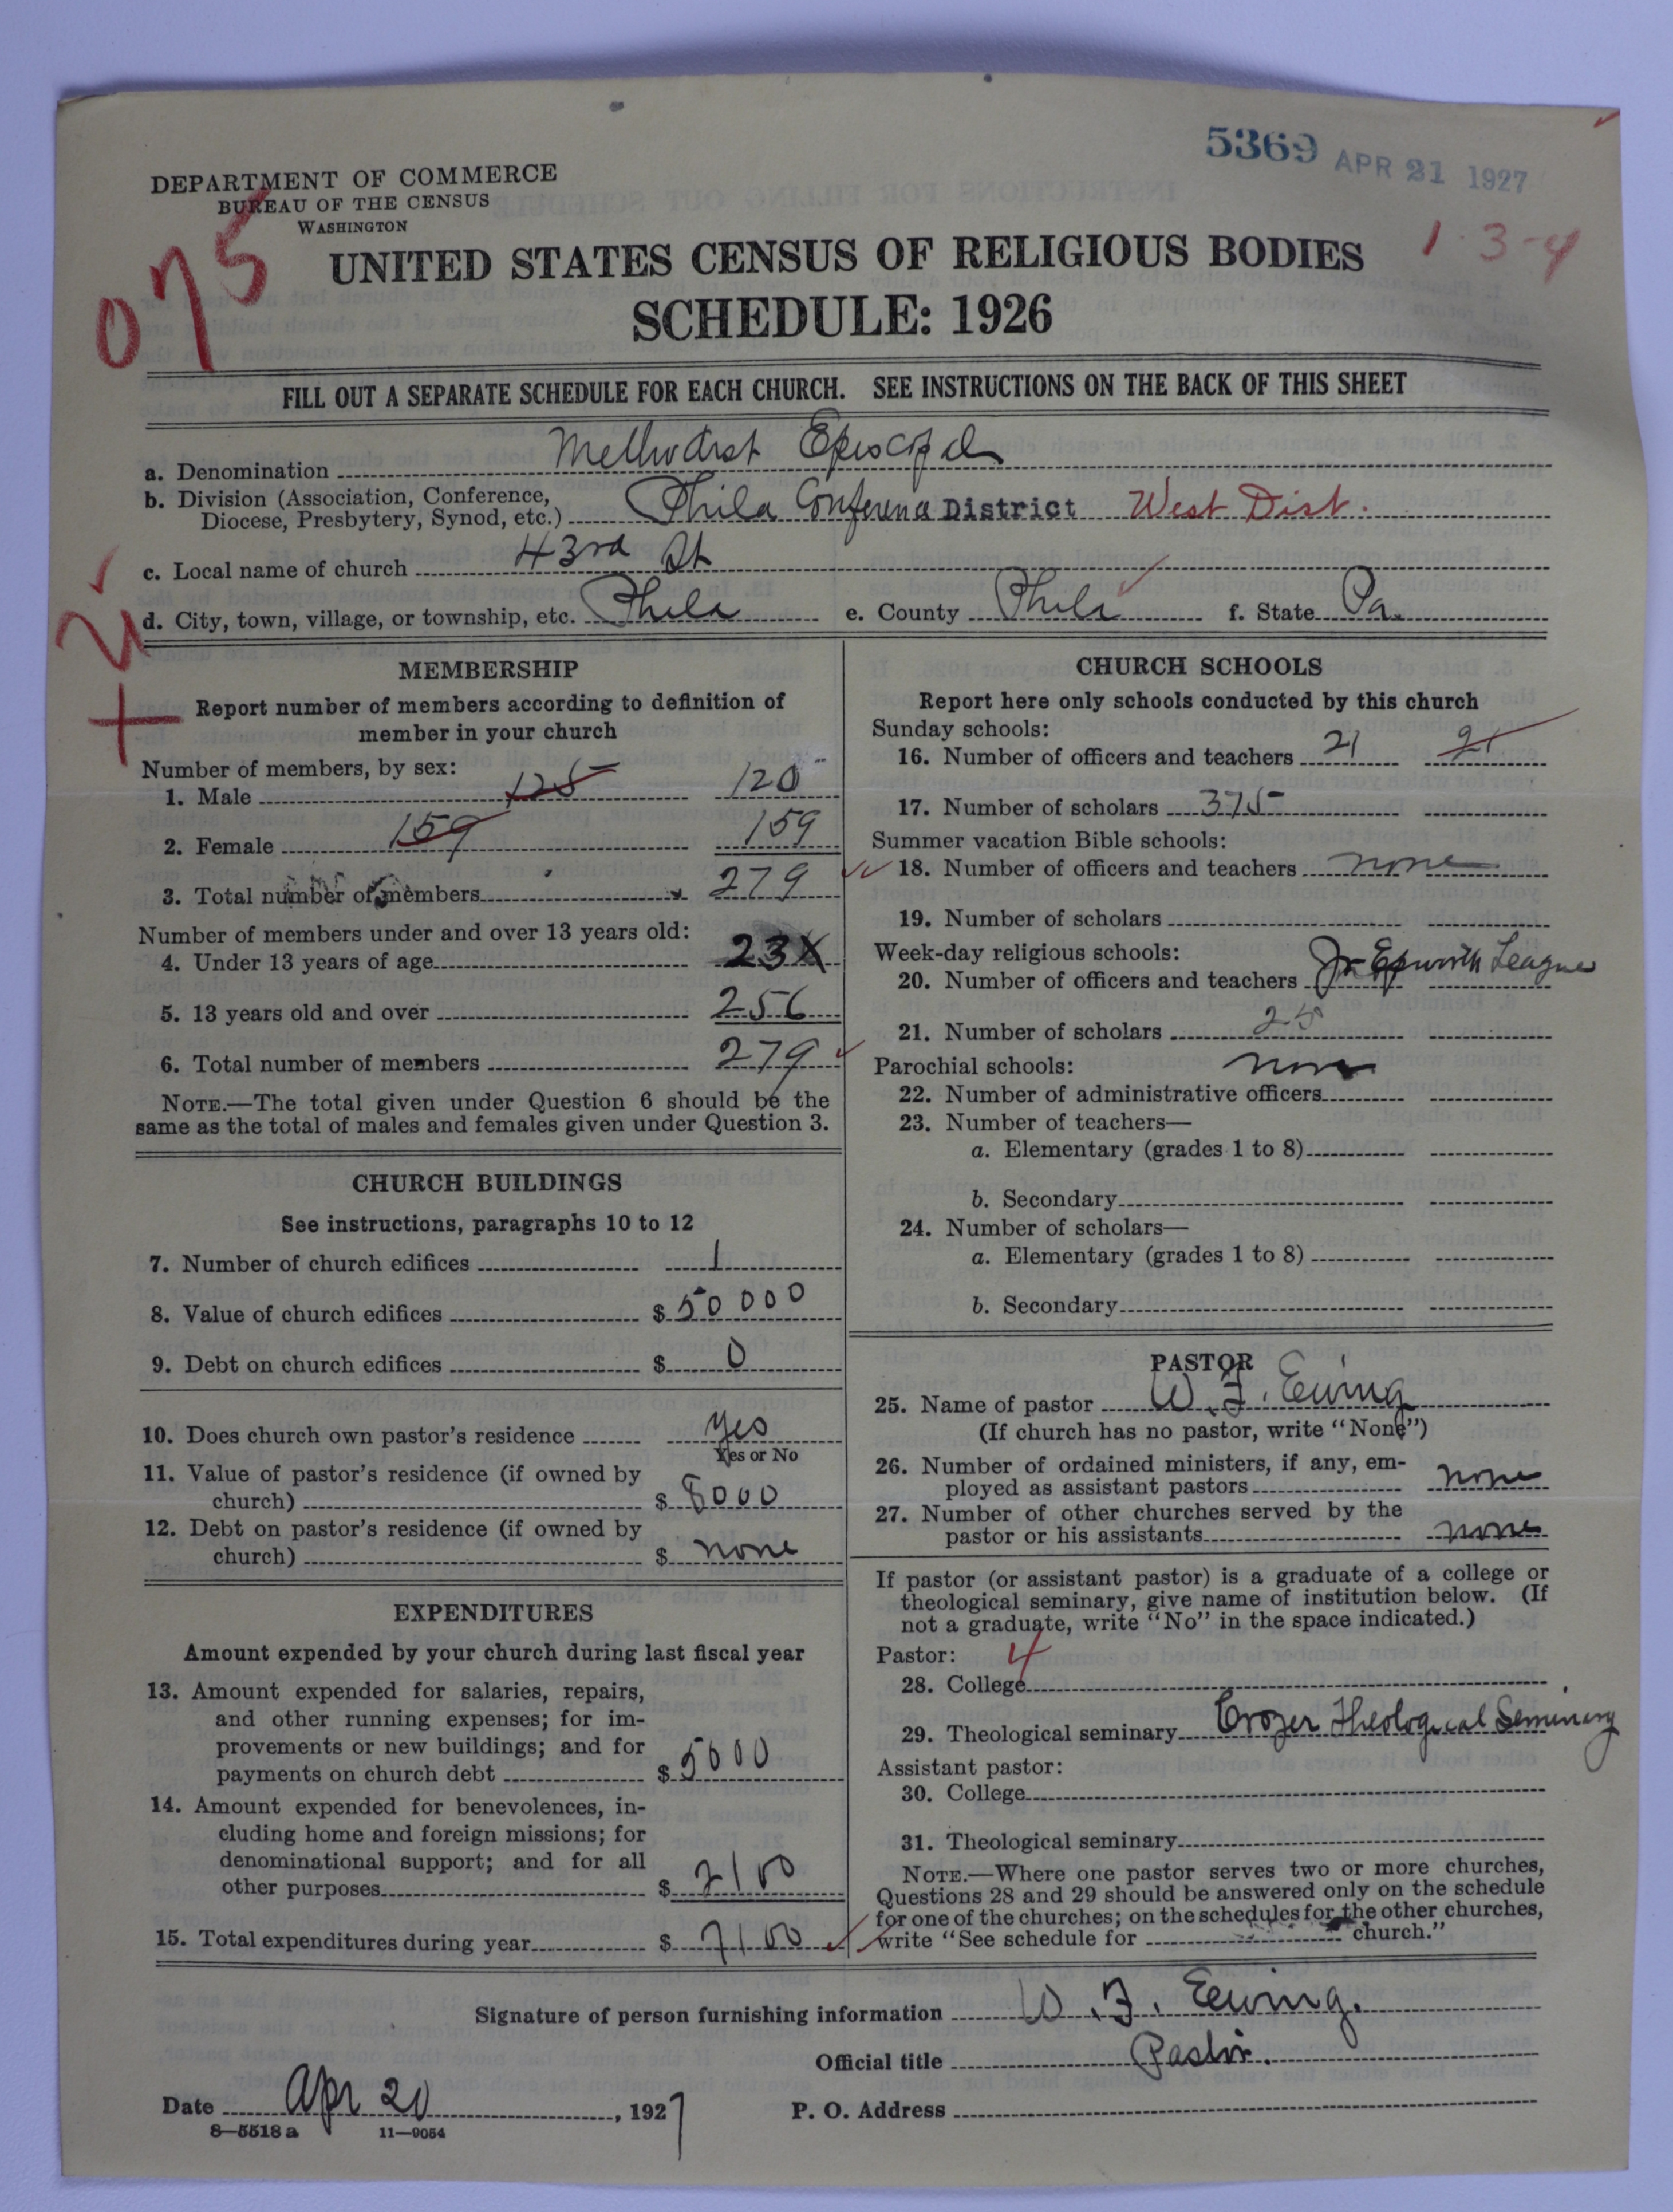 5369 APR 21 1927
DEPARTMENT OF COMMERCE
BUREAU OF THE CENSUS
WASHINGTON
075
1-3-4
UNITED STATES CENSUS OF RELIGIOUS BODIES
SCHEDULE: 1926
FILL OUT A SEPARATE SCHEDULE FOR EACH CHURCH. SEE INSTRUCTIONS ON THE BACK OF THIS SHEET
a. Denomination Methodist Episcopal
b. Division (Association, Conference,
Diocese, Presbytery, Synod, etc.) Phila Conference District West Dist.
c. Local name of church 43rd St
d. City, town, village, or township, etc. Phila e. County Phila f. State Pa.
MEMBERSHIP
Report number of members according to definition of
member in your church
Number of members, by sex:
1. Male 125 120
2. Female 159 159
3. Total number of members 279
Number of members under and over 13 years old:
4. Under 13 years of age 23X
5. 13 years old and over 256
6. Total number of members 279
NOTE.—The total given under Question 6 should be the
same as the total of males and females given under Question 3.
CHURCH BUILDINGS
See instructions, paragraphs 10 to 12
7. Number of church edifices 1
8. Value of church edifices $ 50000
9. Debt on church edifices $ 0
10. Does church own pastor's residence yes
Yes or No
11. Value of pastor's residence (if owned by
church) $ 8000
12. Debt on pastor's residence (if owned by
church) $ none
EXPENDITURES
Amount expended by your church during last fiscal year
13. Amount expended for salaries, repairs,
and other running expenses; for im-
provements or new buildings; and for
payments on church debt $ 5000
14. Amount expended for benevolences, in-
cluding home and foreign missions; for
denominational support; and for all
other purposes $ 2100
15. Total expenditures during year $ 7100
CHURCH SCHOOLS
Report here only schools conducted by this church
Sunday schools:
16. Number of officers and teachers 21 21
17. Number of scholars 375
Summer vacation Bible schools:
18. Number of officers and teachers none
19. Number of scholars
Week-day religious schools:
20. Number of officers and teachers Jr Epworth League
21. Number of scholars 25
Parochial schools: none
22. Number of administrative officers
23. Number of teachers—
a. Elementary (grades 1 to 8)
b. Secondary
24. Number of scholars—
a. Elementary (grades 1 to 8)
b. Secondary
PASTOR
25. Name of pastor W. F. Ewing
(If church has no pastor, write "None")
26. Number of ordained ministers, if any, em-
ployed as assistant pastors none
27. Number of other churches served by the
pastor or his assistants none
If pastor (or assistant pastor) is a graduate of a college or
theological seminary, give name of institution below. (If
not a graduate, write "No" in the space indicated.)
Pastor: 4
28. College
29. Theological seminary Crozer Theological Seminary
Assistant pastor:
30. College
31. Theological seminary
NOTE.—Where one pastor serves two or more churches,
Questions 28 and 29 should be answered only on the schedule
for one of the churches; on the schedules for the other churches,
write "See schedule for church."
Signature of person furnishing information W. F. Ewing.
Official title Pastor.
Date Apr 20, 1927 P. O. Address
8—5518 a 11—9054